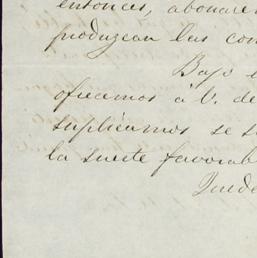 entonces, abonare
produzcan las con
Bajo e
ofrecemos á V. de
suplicamos se s
la suerte favorab
Quede